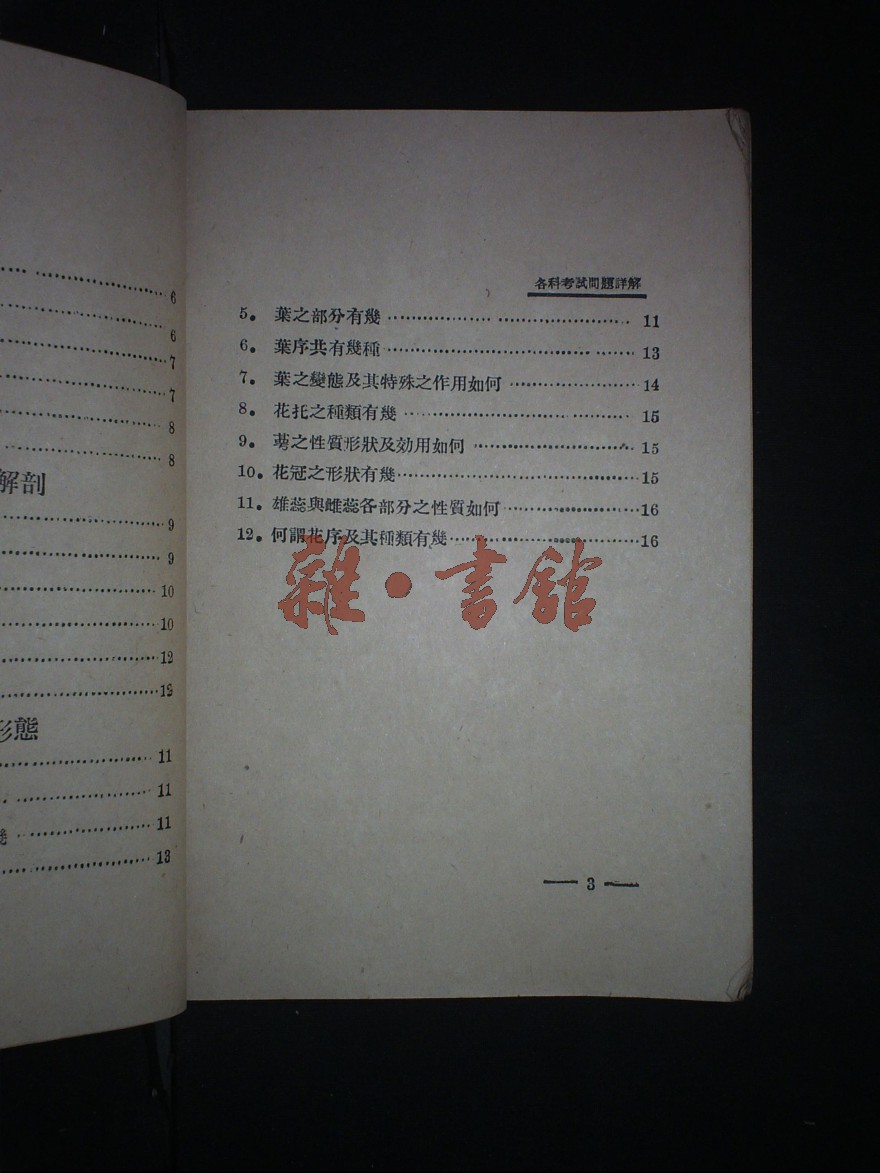 6
6
7
7
8
8
解剖
9
9
10
10
12
12
形態
11
11
幾 11
13
各科考試問題詳解
5. 葉之部分有幾 11
6. 葉序共有幾種 13
7. 葉之變態及其特殊之作用如何 14
8. 花托之種類有幾 15
9. 萼之性質形狀及効用如何 15
10. 花冠之形狀有幾 15
11. 雄蕊與雌蕊各部分之性質如何 16
12. 何謂花序及其種類有幾 16
雜·書館
— 3 —